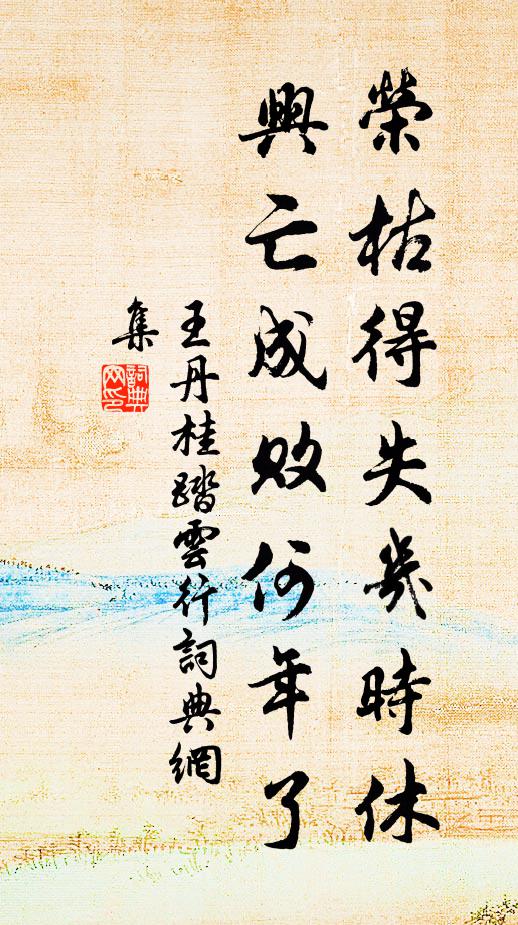 榮枯得失幾時休
興亡成敗何年了
王丹桂踏雲行詞典網
集
詞典
网印